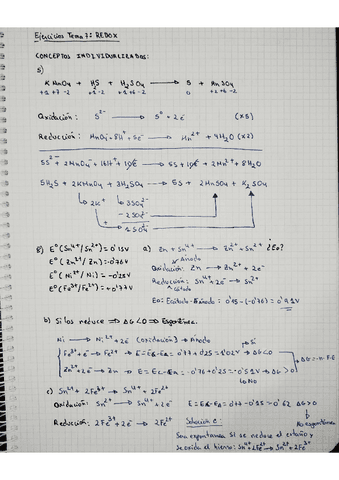 Ejercicios Tema 7: REDOX
CONCEPTOS INDIVIDUALIZADOS:
5)
KMnO4 + HS + H2SO4 → S + MnSO4
+1 +7 -2 +1 -2 +1 +6 -2 0 +2 +6 -2
Oxidación: S²⁻ → S⁰ + 2e⁻ (x5)
Reducción: MnO4⁻ + 8H⁺ + 5e⁻ → Mn²⁺ + 4H2O (x2)
5S²⁻ + 2MnO4⁻ + 16H⁺ + 10e⁻ → 5S + 10e⁻ + 2Mn²⁺ + 8H2O
5H2S + 2KMnO4 + 3H2SO4 → 5S + 2MnSO4 + K2SO4
2K⁺ 3SO4²⁻
- 2SO4²⁻
1 SO4²⁻
8) E⁰(Sn⁴⁺/Sn²⁺) = 0'15V a) Zn + Sn⁴⁺ → Zn²⁺ + Sn²⁺ ¿Eo?
E⁰(Zn²⁺/Zn) = -0'76V Ánodo
E⁰(Ni²⁺/Ni) = -0'25V Oxidación: Zn → Zn²⁺ + 2e⁻
E⁰(Fe³⁺/Fe²⁺) = +0'77V Reducción: Sn⁴⁺ + 2e⁻ → Sn²⁺
Cátodo
Eo: Ecátodo - Eánodo: 0'15 - (-0'76) = 0'91V
b) Si los reduce ⇒ ΔG<0 ⇒ Espontánea.
Ni → Ni²⁺ + 2e⁻ (oxidación) → Ánodo Sí
Fe³⁺ + e⁻ → Fe²⁺ → E = Ec - Ea = 0'77 + 0'25 = 1'02V → ΔG<0 ΔG = -n·F·E
Zn²⁺ + 2e⁻ → Zn → E = Ec - Ea = -0'76 + 0'25 = -0'51V → ΔG > 0
No
c) Sn²⁺ + 2Fe³⁺ → Sn⁴⁺ + 2Fe²⁺
Oxidación: Sn²⁺ → Sn⁴⁺ + 2e⁻ ΔG > 0
No espontánea
Reducción: 2Fe³⁺ + 2e⁻ → 2Fe²⁺ Solución c:
Será espontánea si se reduce el estaño y
se oxida el hierro: